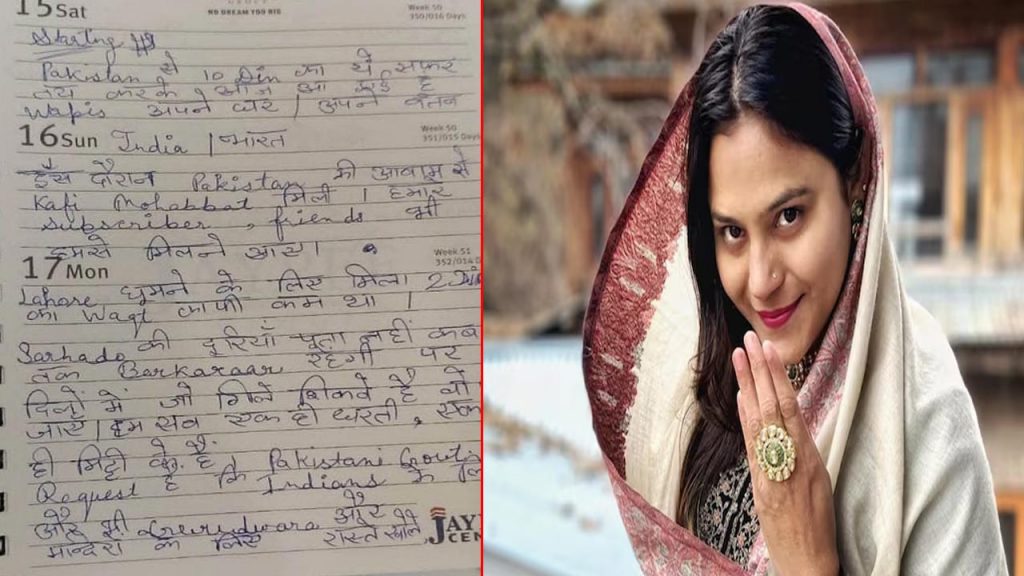 15 Sat
NO DREAM TOO BIG
Week 50
350/016 Days
Starting
Pakistan से 10 Din का ये सफर
तय करके आज आ गई है
Wapis अपने घर | अपने वतन
16 Sun India | भारत
Week 50
351/015 Days
इस दौरान Pakistan की आवाम से
Kafi Mohabbat मिली । हमारे
subscriber, friends भी
हमसे मिलने आए।
17 Mon
Week 51
352/014
Lahore घूमने के लिए मिला 2
का Waqt काफी कम था ।
Sarhado की दूरियाँ पता नहीं कब
तक Barkaraar रहेगी पर
दिलों में जो गिले शिकवे है वो
जाए। हम सब एक ही धरती, एक
ही मिट्टी के है, Pakistani Govt.
Request है कि Indians के
और भी Gurudwara और
मन्दिरों के लिए रास्ते खोले
JAY
CEN